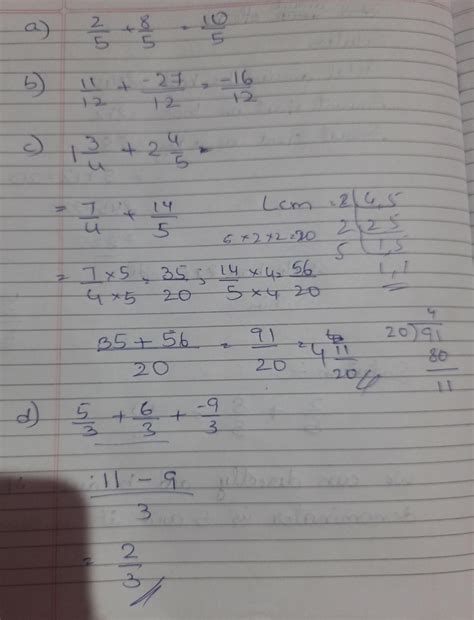 a) 2/5 + 8/5 = 10/5
b) 11/12 + -27/12 = -16/12
c) 1 3/4 + 2 4/5 =
= 7/4 + 14/5
Lcm = 2 | 4,5
2 | 2 5
5 | 1,5
1,1
5×2×2=20
= 7×5/4×5 = 35/20 , 14×4/5×4 = 56/20
35 + 56/20 = 91/20 = 4 11/20
4
20)91
80
11
d) 5/3 + 6/3 + -9/3
11 - 9/3
= 2/3